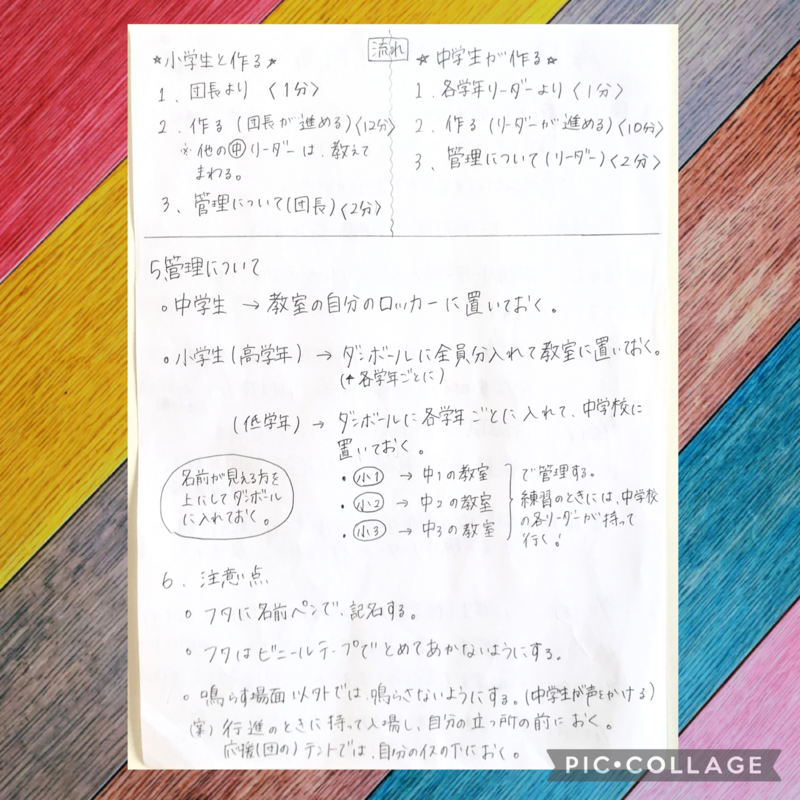 流れ
☆小学生と作る☆
1、団長より〈1分〉
2、作る(団長が進める)〈12分〉
※他の㊥リーダーは、教えて
まわる。
3、管理について(団長)〈2分〉
☆中学生が作る☆
1、各学年リーダーより〈1分〉
2、作る(リーダーが進める)〈10分〉
3、管理について(リーダー)〈2分〉
5、管理について
○中学生 → 教室の自分のロッカーに置いておく。
○小学生(高学年) → ダンボールに全員分入れて教室に置いておく。
(↑各学年ごとに)
(低学年) → ダンボールに各学年ごとに入れて、中学校に
置いておく。
名前が見える方を
上にしてダンボール
に入れておく。
・小1 → 中1の教室
・小2 → 中2の教室
・小3 → 中3の教室
で管理する。
練習のときには、中学校
の各リーダーが持って
行く!
6、注意点
○フタに名前ペンで、記名する。
○フタはビニールテープでとめてあかないようにする。
○鳴らす場面以外では、鳴らさないようにする。(中学生が声をかける)
(案)行進のときに持って入場し、自分の立つ所の前におく。
応援(団の)テントでは、自分のイスの下におく。
PIC•COLLAGE